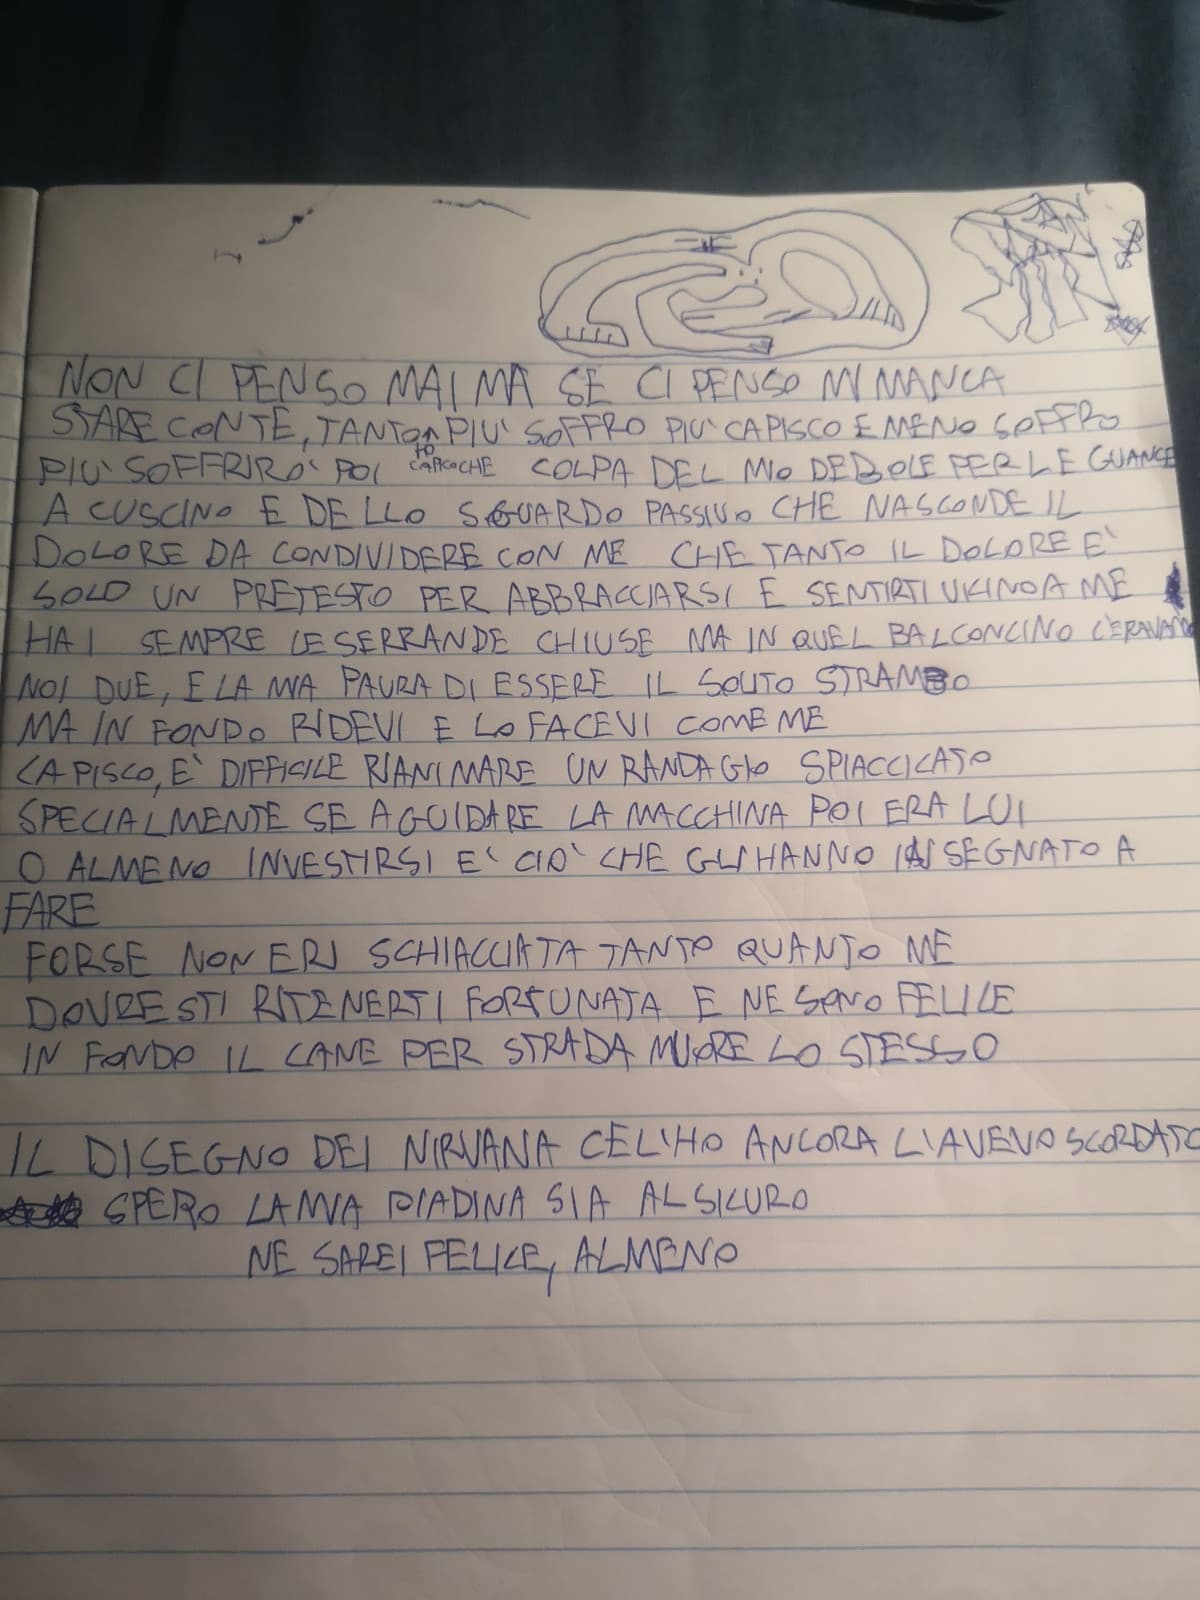 NON CI PENSO MAI MA SE CI PENSO MI MANCA
STARE CON TE, TANTO PIU' SOFFRO PIU' CAPISCO E MENO SOFFRO
PIU' SOFFRIRO' POI CAPISCO CHE COLPA DEL MIO DEBOLE PER LE GUANCE
A CUSCINO E DELLO SGUARDO PASSIVO CHE NASCONDE IL
DOLORE DA CONDIVIDERE CON ME CHE TANTO IL DOLORE E'
SOLO UN PRETESTO PER ABBRACCIARSI E SENTIRTI VICINO A ME
HAI SEMPRE LE SERRANDE CHIUSE MA IN QUEL BALCONCINO C'ERAVAMO
NOI DUE, E LA MIA PAURA DI ESSERE IL SOLITO STRAMBO
MA IN FONDO RIDEVI E LO FACEVI COME ME
CAPISCO, E' DIFFICILE RIANIMARE UN RANDAGIO SPIACCICATO
SPECIALMENTE SE A GUIDARE LA MACCHINA POI ERA LUI
O ALMENO INVESTIRSI E' CIO' CHE GLI HANNO INSEGNATO A
FARE
FORSE NON ERI SCHIACCIATA TANTO QUANTO ME
DOVRESTI RITENERTI FORTUNATA E NE SONO FELICE
IN FONDO IL CANE PER STRADA MUORE LO STESSO
IL DISEGNO DEI NIRVANA CEL'HO ANCORA L'AVEVO SCORDATO
SPERO LA MIA PIADINA SIA AL SICURO
NE SAREI FELICE, ALMENO